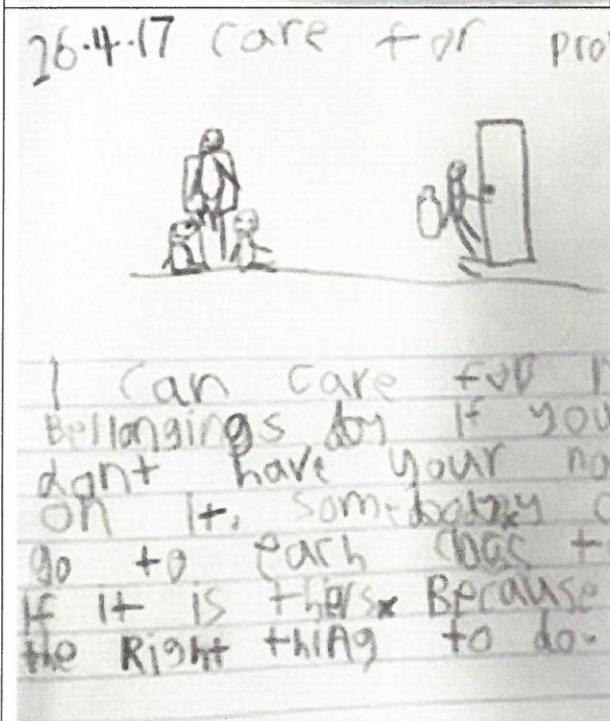 26.4.17 care for pro
I can care for
Bellongings by If you
dont have your na
on It. Somebody c
go to each clas to
If it is thers. Because
the Right thing to do.